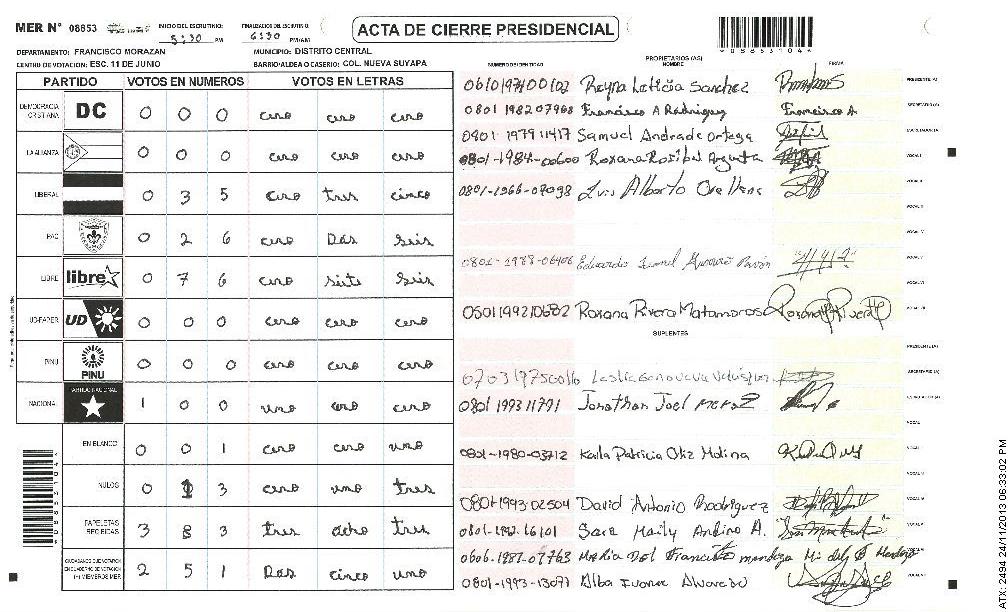 MER Nº 08853 INICIO DEL ESCRUTINIO: 5:30 PM FINALIZACION DEL ESCRUTINIO: 6:30 PM/AM ACTA DE CIERRE PRESIDENCIAL
DEPARTAMENTO: FRANCISCO MORAZAN MUNICIPIO: DISTRITO CENTRAL
CENTRO DE VOTACION: ESC. 11 DE JUNIO BARRIO/ALDEA O CASERIO: COL. NUEVA SUYAPA
PARTIDO VOTOS EN NUMEROS VOTOS EN LETRAS
DEMOCRACIA CRISTIANA DC 0 0 0 cero cero cero
LA ALIANZA 0 0 0 cero cero cero
LIBERAL 0 3 5 cero tres cinco
PAC 0 2 6 cero Dos Seis
LIBRE libre 0 7 6 cero siete Seis
UD-FAPER UD 0 0 0 cero cero cero
PINU PINU 0 0 0 cero cero cero
NACIONAL PARTIDO NACIONAL 1 0 0 uno cero cero
EN BLANCO 0 0 1 cero cero uno
NULOS 0 1 3 cero uno tres
PAPELETAS RECIBIDAS 3 8 3 tres ocho tres
2 5 1 Dos cinco uno
PROPIETARIOS (AS)
NUMERO IDENTIDAD NOMBRE FIRMA
Reyna Leticia Sanchez PRESIDENTE (A)
0801 1982 07968 Francisco A Rodriguez Francisco A SECRETARIO (A)
0801 1979 11417 Samuel Andrade Ortega ESCRUTADOR (A)
0801-1984-00600 Roxana Rosibel Argueta VOCAL I
0801-1966-07098 Luis Alberto VOCAL II
VOCAL III
VOCAL IV
0801-1988-06406 Eduardo VOCAL V
VOCAL VI
0501199210682 Roxana Rivera Matamoros VOCAL VII
SUPLENTES
PRESIDENTE (A)
Leslie Genoveva SECRETARIO (A)
0801 1993 11791 Jonathan Joel ESCRUTADOR (A)
VOCAL I
0801-1980-03712 Karla Patricia Ortiz Molina VOCAL II
VOCAL III
0801-1993-02504 David Antonio Rodriguez VOCAL IV
Sara Andino A. VOCAL V
Maria Del mendoza VOCAL VI
0801-1993-13071 Alba Ivonne Alvarado VOCAL VII
ATX-2494 24/11/2013 06:33:02 PM